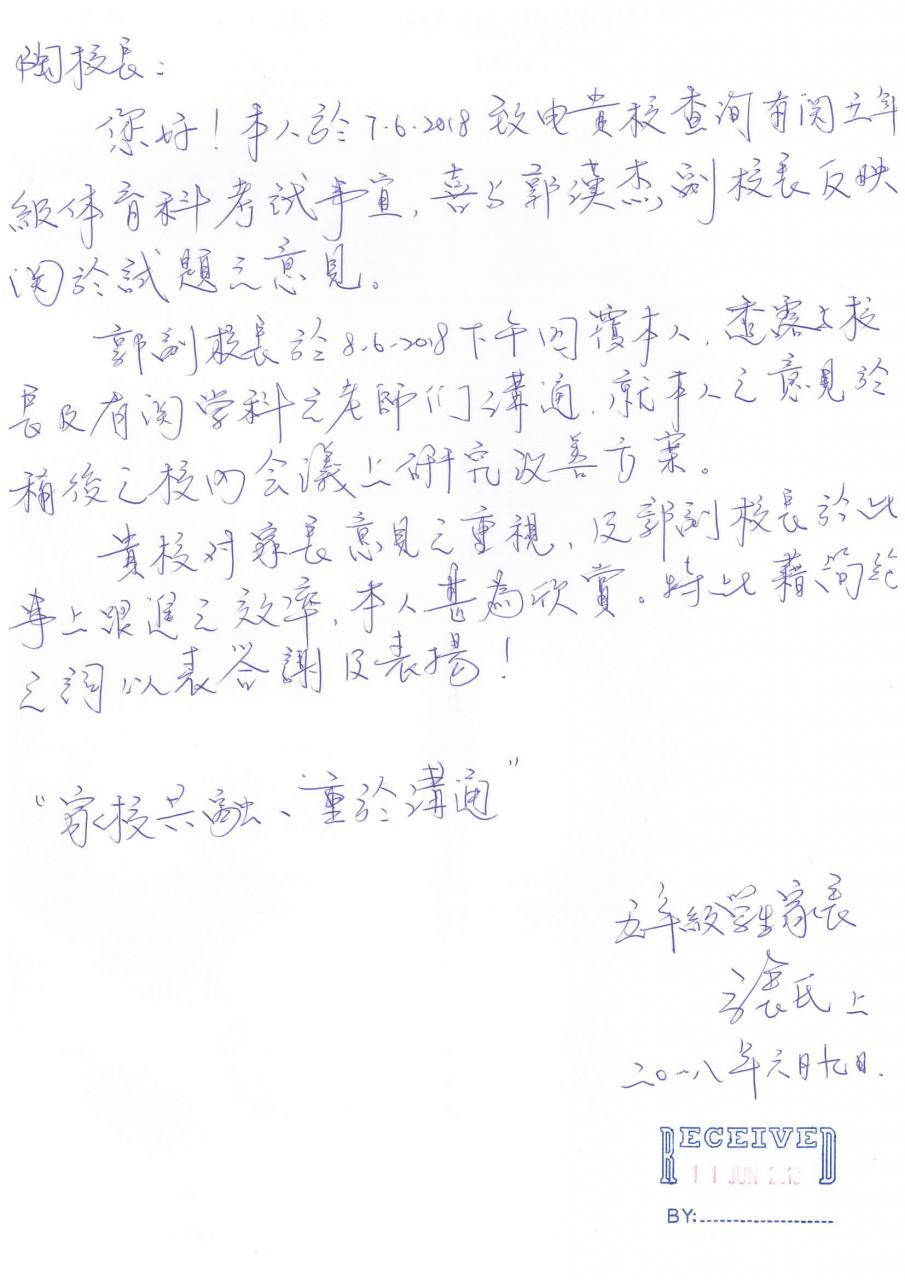 陶校長：
您好！本人於7.6.2018致电貴校查詢有関五年
級体育科考試事宜，喜与郭漢杰副校長反映
関於試題之意見。
郭副校長於8.6.2018下午回覆本人，透露与校
長及有関学科之老師们溝通，就本人之意見於
稍後之校内会議上研究改善方案。
貴校对家長意見之重視，及郭副校長於此
事上跟進之效率，本人甚為欣賞。特此藉簡短
之詞以表答謝及表揚！
"家校共融、重於溝通"
五年級学生家長
氏上
二〇一八年六月九日.
RECEIVED
11 JUN 2018
BY: